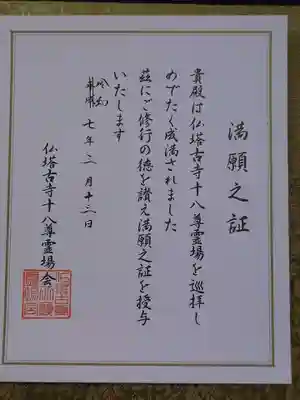 満願之証
貴殿は仏塔古寺十八尊霊場を巡拝し
めでたく成満されました
茲にご修行の徳を讃え満願之証を授与
いたします
令和
七年二月十三日
仏塔古寺十八尊霊場会